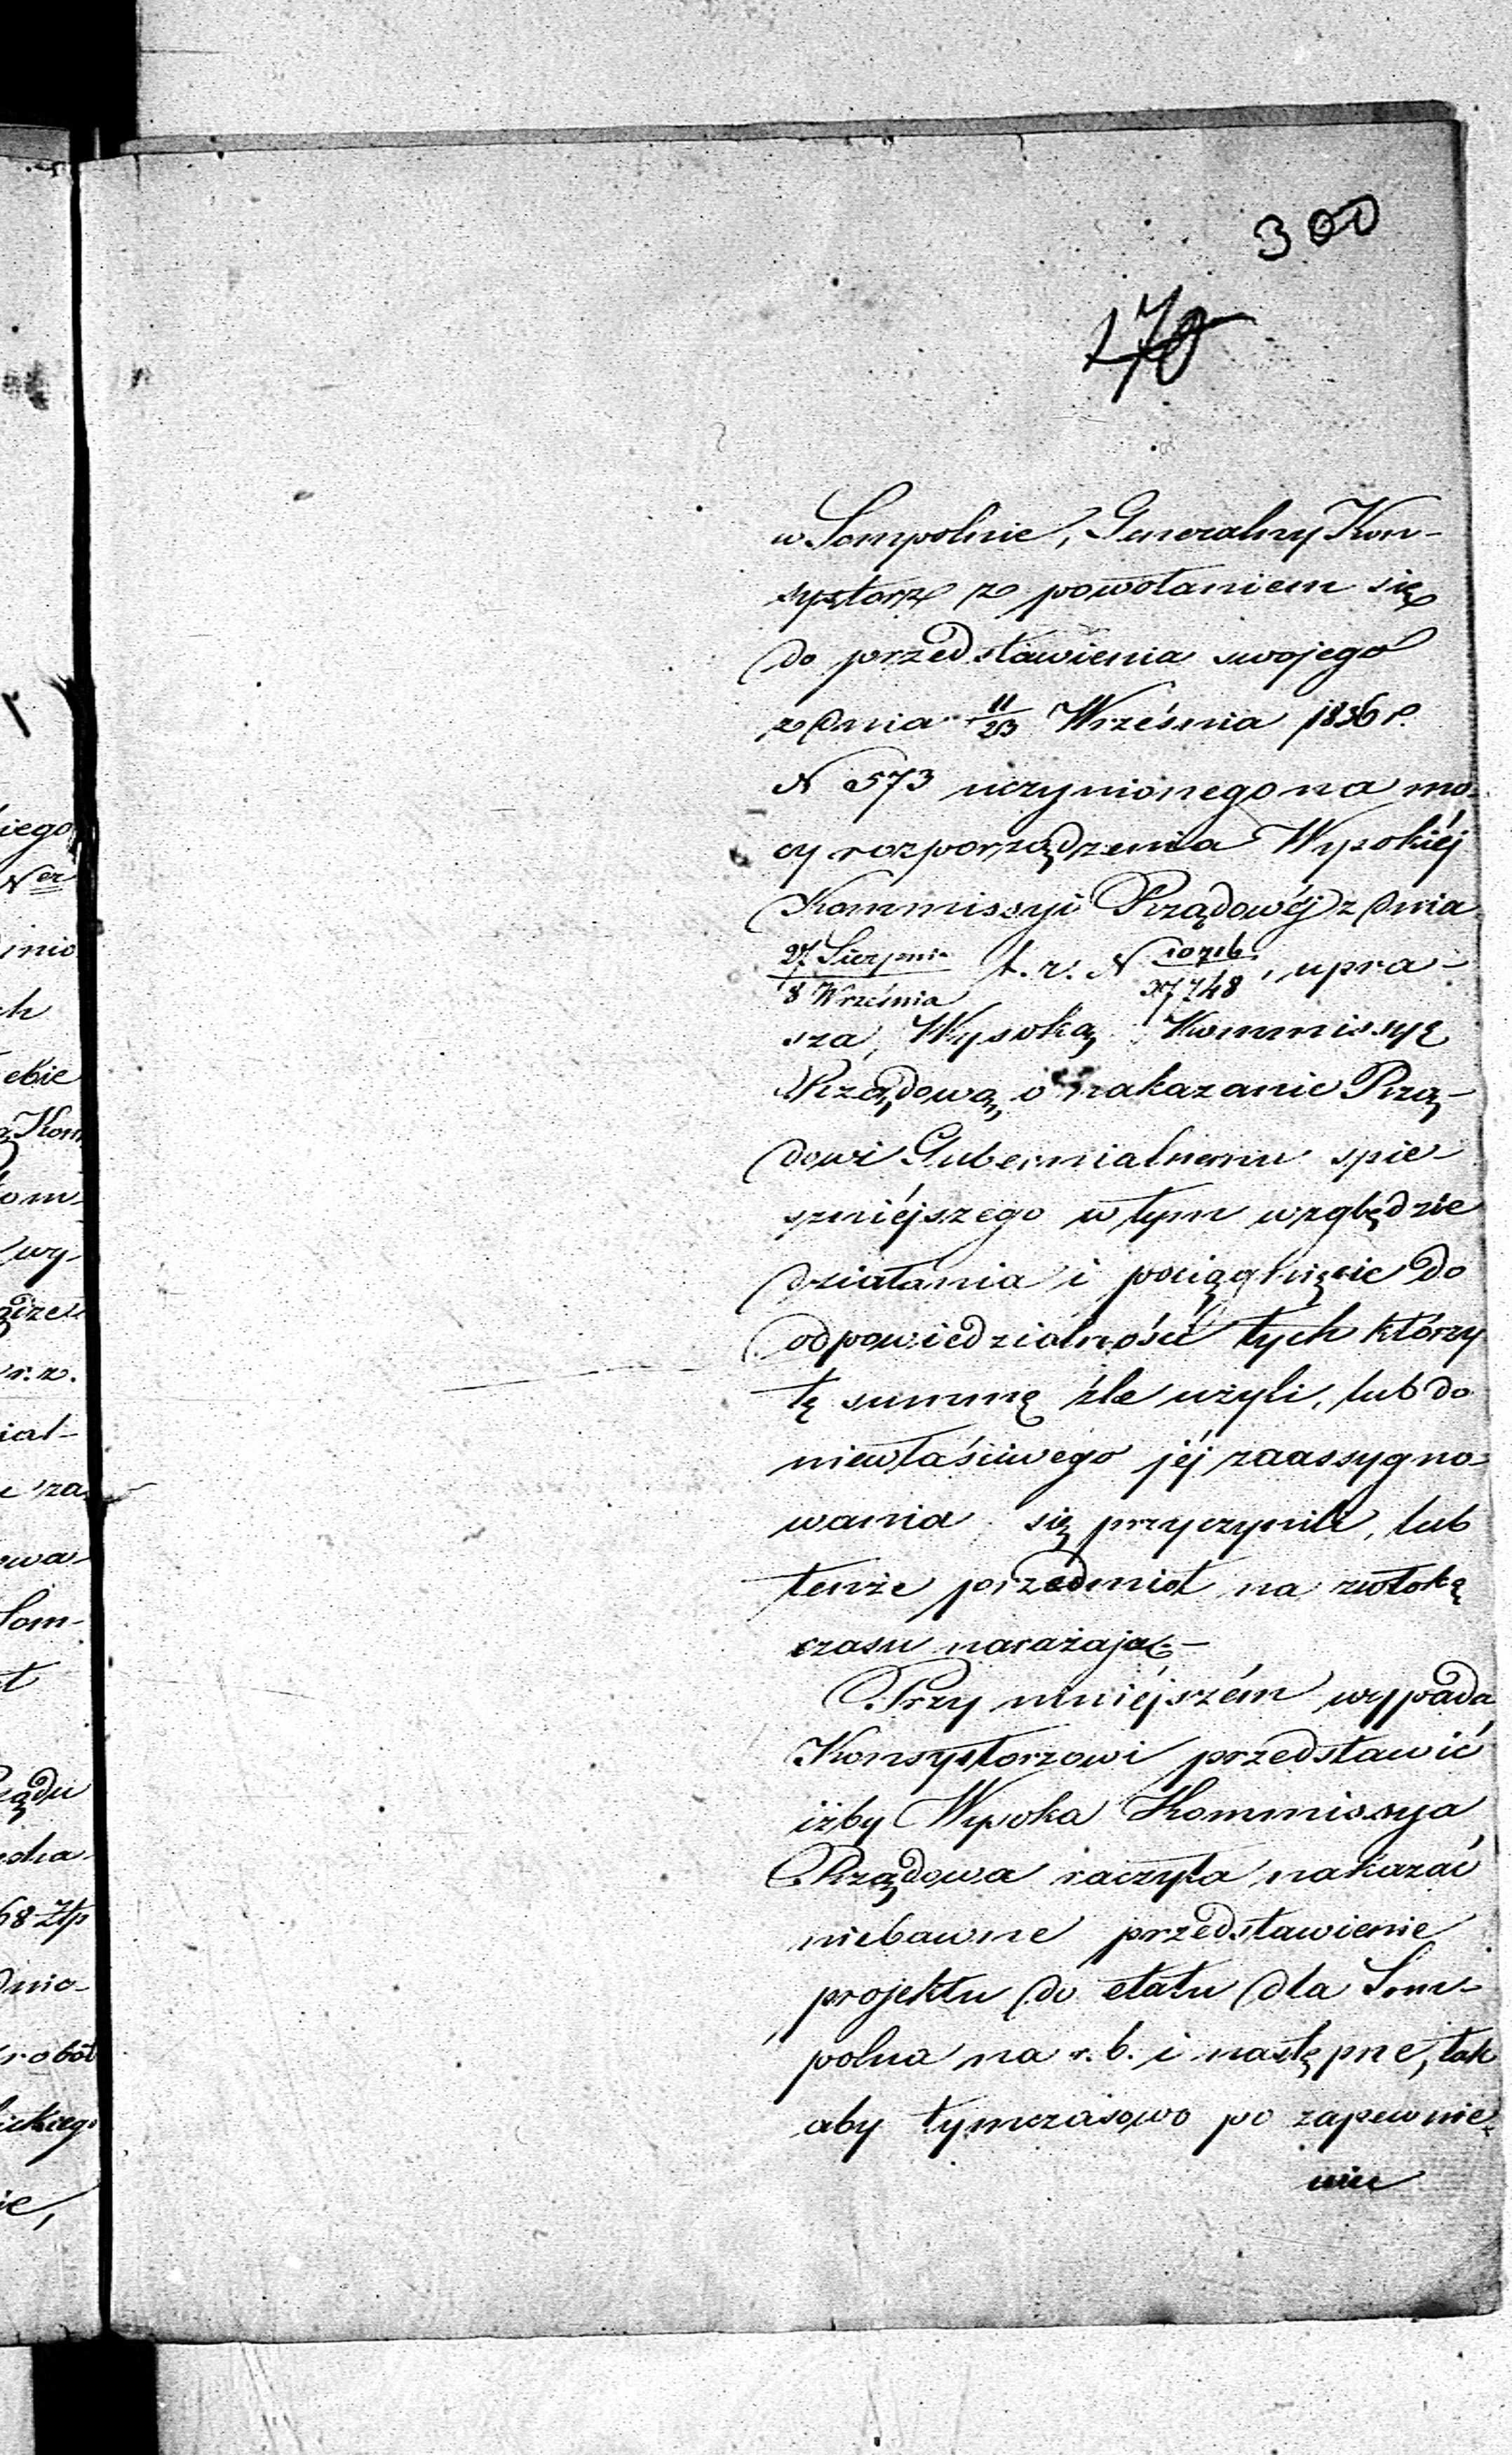 300
170
w Sompolnie, Generalny Kon-
systorz z powołaniem się
do przedstawienia swojego
z dnia 11/23 Września 1836 r.
N 573 uczynionego na mo-
cy rozporządzenia Wysokiéj
Kommissyi Rządowéj z dnia
27 Sierpnia/8 Września t. r. N 10716/27748, upra-
sza, Wysoką Kommissyę
Rządową, o nakazanie Rzą-
dowi Gubernialnemu spie-
szniéjszego w tym względzie
działania i pociągnięcie do
odpowiedzialności tych którzy
tę summę źle użyli, lub do
niewłaściwego jéj zaassygno-
wania się przyczynili, lub
tenże przedmiot na zwłokę
czasu narażają.-
Przy niniéjszém wypada
Konsystorzowi przedstawić
iżby Wysoka Kommissya
Rządowa raczyła nakazać
niebawne przedstawienie
projektu do etatu dla Som-
polna na r. b. i następne, tak
aby tymczasowo po zapewnie-
niu
iego
N er
ch
ebie
Kom
om-
wy-
r. z.
ial-
za
owa-
Som-
t
ządu
68 Złp
robót
ie,